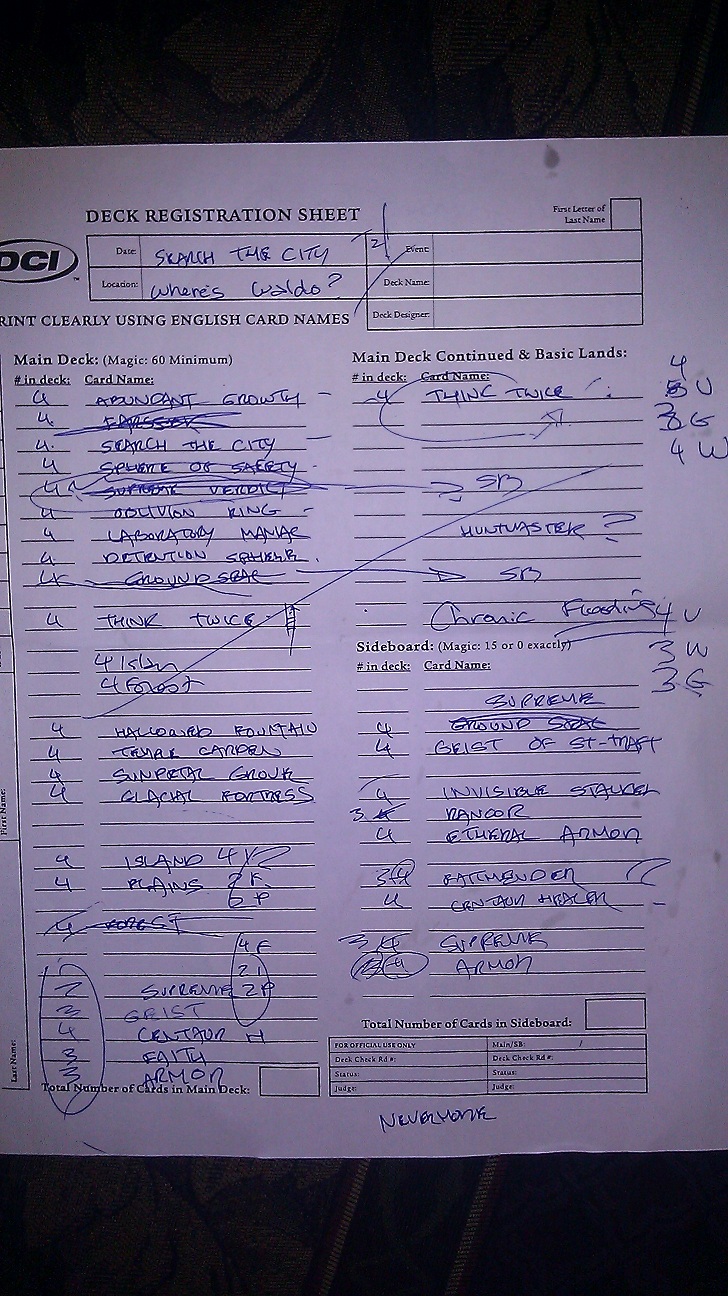 DECK REGISTRATION SHEET
First Letter of
Last Name
DCI
Date: SEARCH THE CITY
Location: Where's Waldo?
T2
Event:
Deck Name:
Deck Designer:
RINT CLEARLY USING ENGLISH CARD NAMES
Main Deck: (Magic: 60 Minimum)
# in deck: Card Name:
4 ABUNDANT GROWTH -
4 FARSEEK
4 SEARCH THE CITY -
4 SPHERE OF SAFETY -
4 SUPREME VERDICT
4 OBLIVION RING -
4 LABORATORY MANIAC
4 DETENTION SPHERE
4 GROUND SEAL
4 THINK TWICE
4 Island
4 Forest
4 HALLOWED FOUNTAIN
4 TEMPLE GARDEN
4 SUNPETAL GROVE
4 GLACIAL FORTRESS
4 ISLAND 4
4 PLAINS 2 F
6 P
4 FOREST
4 F
2 I
2 SUPREME 2P
3 GEIST
4 CENTAUR H
3 FAITH
3 ARMOR
Total Number of Cards in Main Deck:
Main Deck Continued & Basic Lands:
# in deck: Card Name:
4 THINK TWICE
4
U
3 G
4 W
SB
HUNTMASTER ?
SB
Chronic Flooding
4 U
3 W
3 G
Sideboard: (Magic: 15 or 0 exactly)
# in deck: Card Name:
SUPREME
4 GROUND SEAL
4 GEIST OF ST-TRAFT
4 INVISIBLE STALKER
3 RANCOR
4 ETHERAL ARMOR
3 4 FAITHMENDER
4 CENTAUR HEALER -
3 4 SUPREME
4 ARMOR
Total Number of Cards in Sideboard:
FOR OFFICIAL USE ONLY
Main/SB: /
Deck Check Rd #:
Deck Check Rd #:
Status:
Status:
Judge:
Judge:
First Name:
Last Name:
NEVERMORE